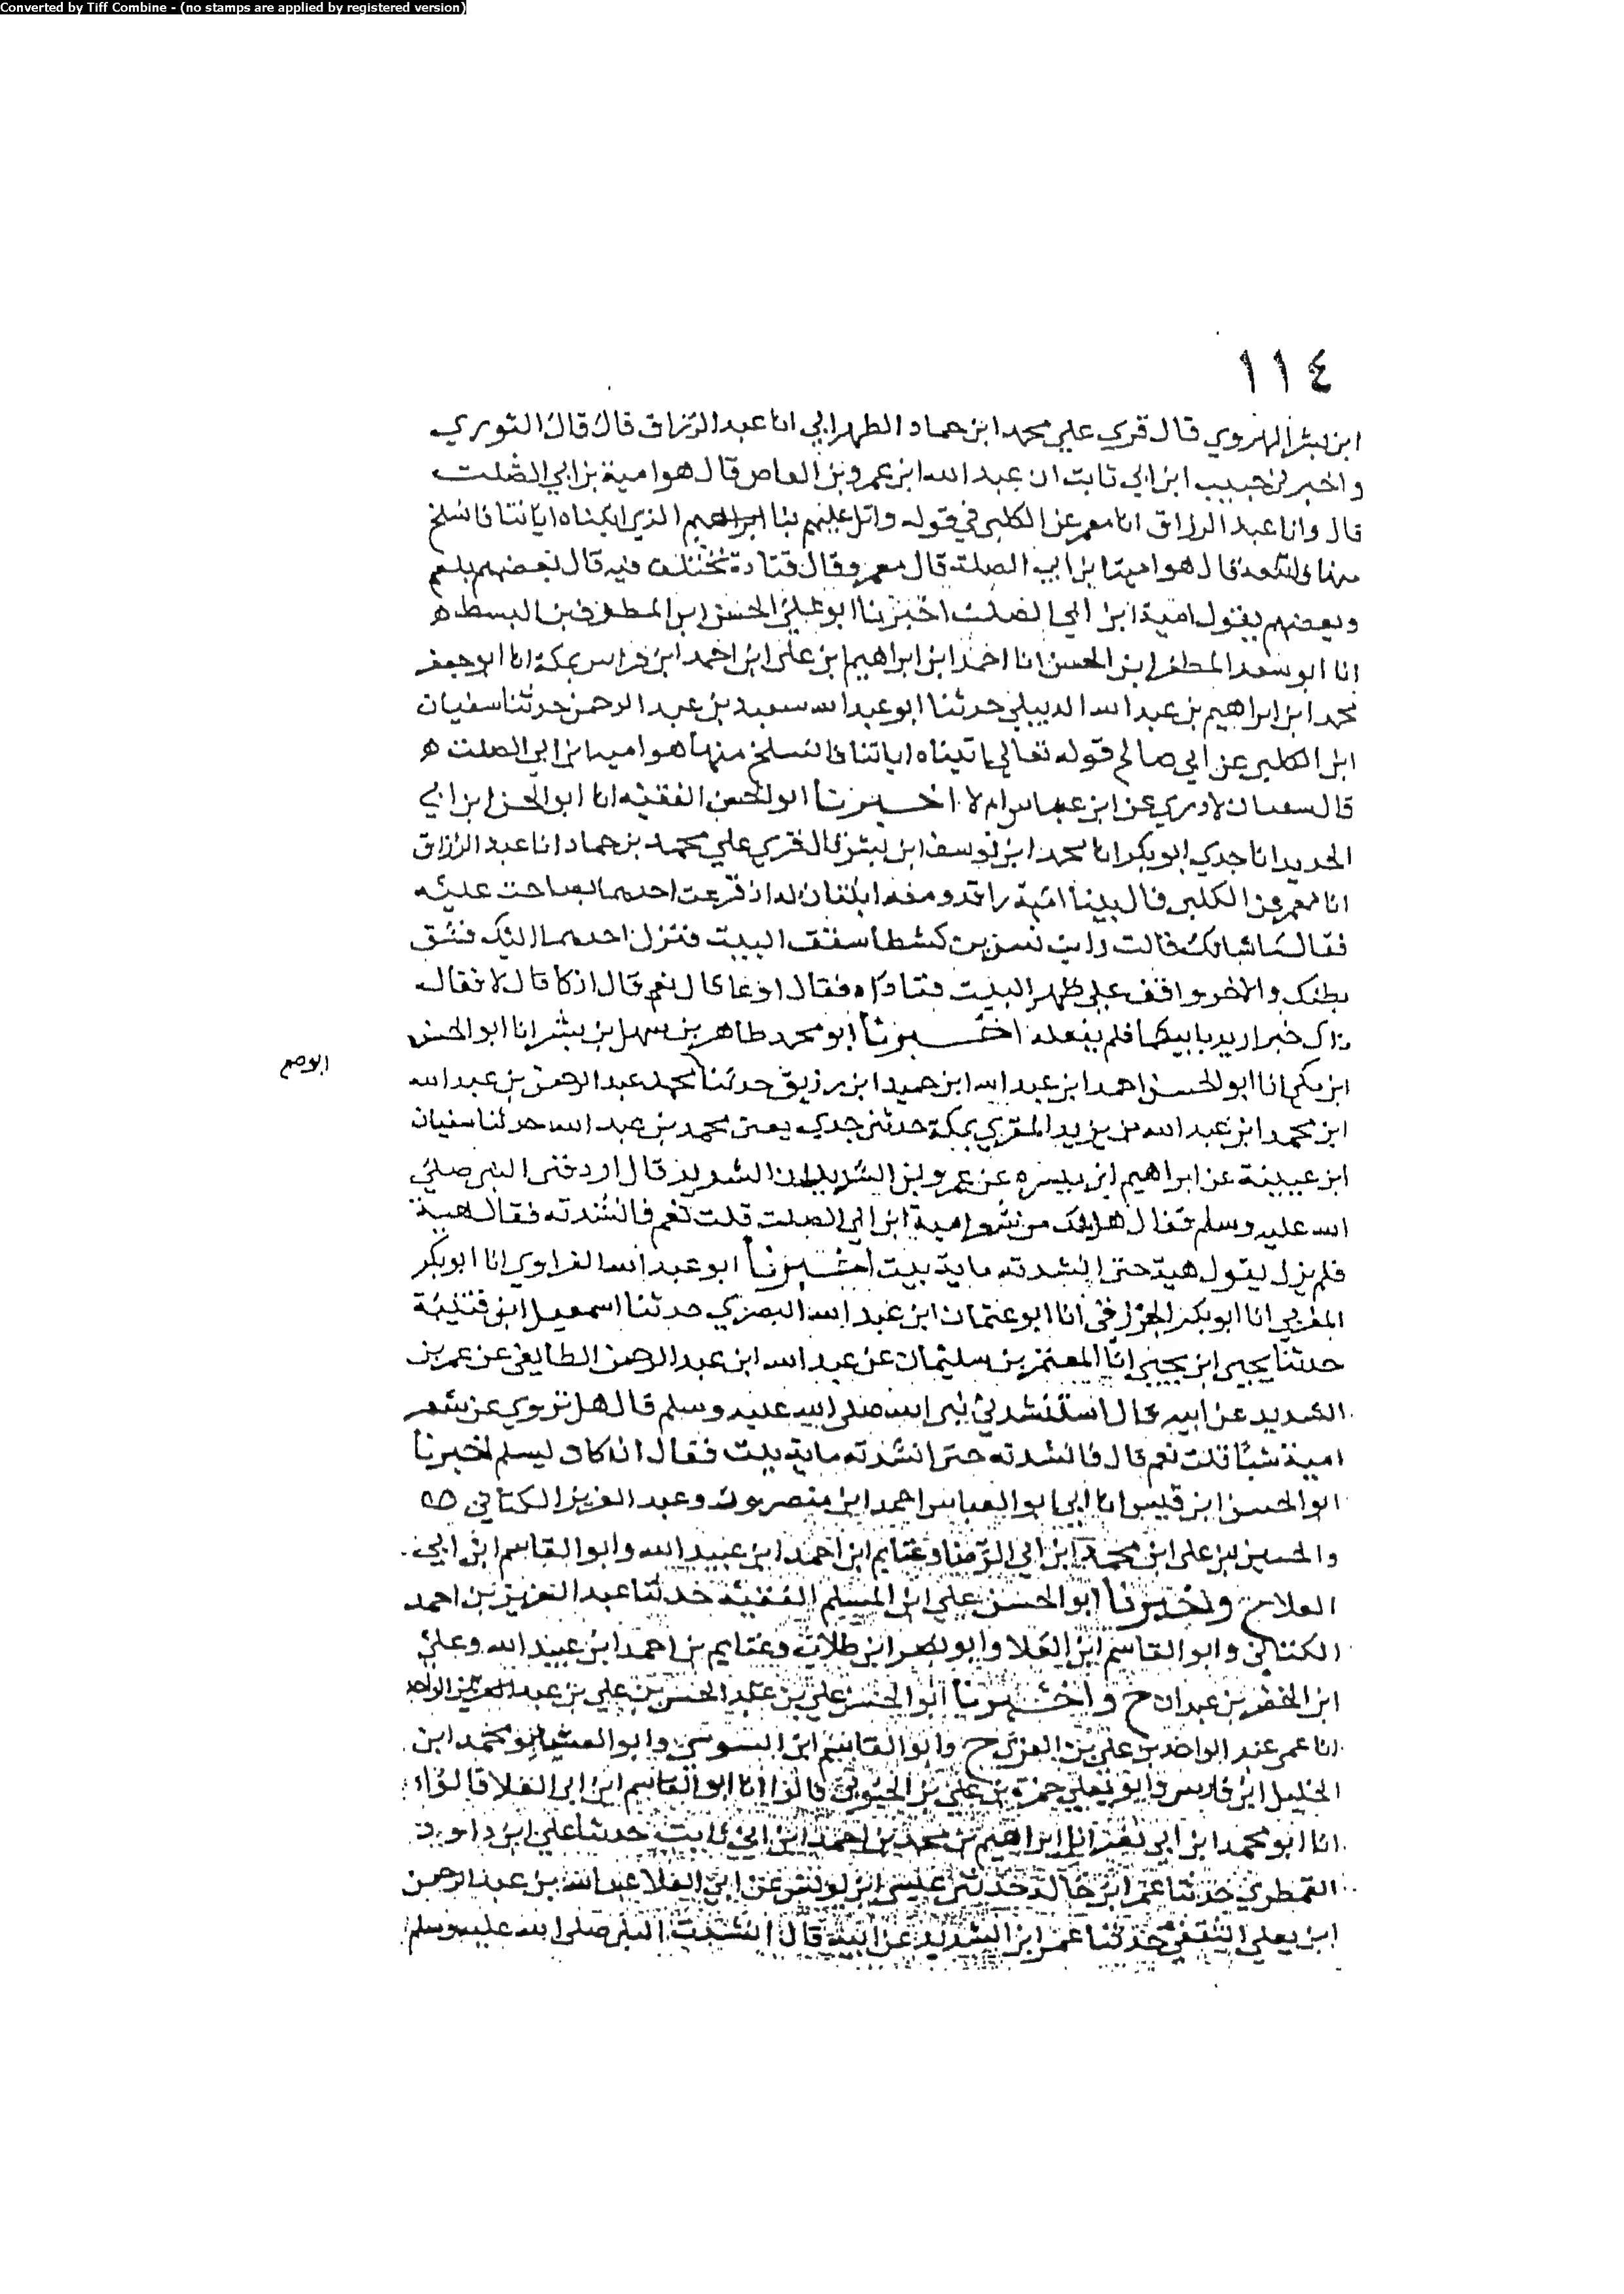 Converted by Tiff Combine - (no stamps are applied by registered version)
١١٤
ابن بشر الهروي قال قري علي محمد ابن حماد الطهراني انا عبد الرزاق قال قال الثوري
واخبرني حبيب ابن ابي ثابت ان عبد الله ابن عمرو بن العاص قال هو امية بن ابي الصلت
قال وانا عبد الرزاق انا معمر عن الكلبي في قوله واتل عليهم نبا ابراهيم الذي اتيناه اياتنا فانسلخ
منها قال هو امية ابن ابي الصلت قال معمر وقال قتادة يختلف فيه قال بعضهم بلعم
وبعضهم يقول امية ابن ابي الصلت اخبرنا ابو علي الحسن ابن المظفر بن السبط ه
انا ابو سعد المظفر ابن الحسن انا احمد ابن ابراهيم ابن علي ابن احمد ابن فراس بمكة انا ابو جعفر
محمد ابن ابراهيم بن عبد الله الديبلي حدثنا ابو عبد الله سعيد بن عبد الرحمن حدثنا سفيان
ابن الكلبي عن ابي صالح قوله تعالي اتيناه اياتنا فانسلخ منها هو امية ابن ابي الصلت ه
قال سفيان لا ادري عن ابن عباس ام لا اخبرنا ابو الحسن الفقيه انا ابو الحسن ابن ابي
الحديد انا جدي ابو بكر انا محمد ابن يوسف ابن بشر قال قري علي محمد بن حماد انا عبد الرزاق
انا معمر عن الكلبي قال بينا امية راقد ومعه ابنتان له اذ فزعت احدهما فصاحت عليه
فقال ما شانك قالت رايت نسرين كشطا سقف البيت فنزل احدهما اليك فشق
بطنك والاخر واقف علي ظهر البيت فناداه فقال اوعا قال نعم قال ازكا قال لا فقال
ذاك خير اريد بابيكما فلم يفعله اخبرنا ابو محمد طاهر بن سهل بن بشر انا ابو الحسن
ابن مكي انا ابو الحسن احمد ابن عبد الله ابن حميد ابن رزيق حدثنا محمد عبد الرحمن بن عبد الله
ابو صح
ابن محمد ابن عبد الله بن يزيد المقري بمكة حدثني جدي يعني محمد بن عبد الله حدثنا سفيان
ابن عيينة عن ابراهيم ابن ميسره عن عمرو ابن الشريد الشريد قال اردفني النبي صلي
الله عليه وسلم فقال هل معك من شعر امية ابن ابي الصلت قلت نعم فانشدته فقال هية
فلم يزل يقول هية حتى انشدته ماية بيت اخبرنا ابو عبد الله الفراوي انا ابو بكر
المغربي انا ابو بكر الجوزقي انا ابو عثمان ابن عبد الله البصري حدثنا اسمعيل ابن قتيبة
حدثنا يحيى ابن يحيى انا المعتمر بن سليمان عن عبد الله ابن عبد الرحمن الطايفي عن عمرو بن
الشديد عن ابيه قال استنشدني نبي الله صلى الله عليه وسلم قال هل تروي عن شعر
امية شيا قلت نعم قال فانشدته حتى انشدته ماية بيت فقال ان كاد ليسلم اخبرنا
ابو الحسن ابن قبيس انا ابي ابو العباس احمد ابن منصور وعبد العزيز الكتاني
والحسين بن علي ابن محمد ابن ابي الرضا وغنايم ابن احمد ابن عبيد الله وابو القاسم ابن ابي
العلا ح واخبرنا ابو الحسن علي ابن المسلم الفقيه حدثنا عبد العزيز بن احمد
الكتاني وابو القاسم ابن العلا وابو نصر ابن طلاب وغنايم بن احمد ابن عبيد الله وعلي
ابن الخضر بن عبدان ح واخبرنا ابو الحسن علي بن عبد الحسن بن علي بن عبد الواحد
انا عمي عبد الواحد بن علي بن البري ح وابو القاسم ابن السوسي وابو العشاير محمد ابن
الخليل ابن فارس وابو يعلي حمزة بن علي بن الحبوبي قالوا انا ابو القاسم ابن ابي العلا قالوا
انا ابو محمد ابن ابي نصر انا ابراهيم بن محمد بن احمد ابن ابي ثابت حدثنا علي ابن داوود
القمطري حدثنا عمر ابن خالد حدثني عيسى ابن يونس عن ابي العلا عبد الله بن عبد الرحمن
ابن يعلي الثقفي حدثنا عمر ابن الشديد عن ابيه قال انشدت النبي صلى الله عليه وسلم